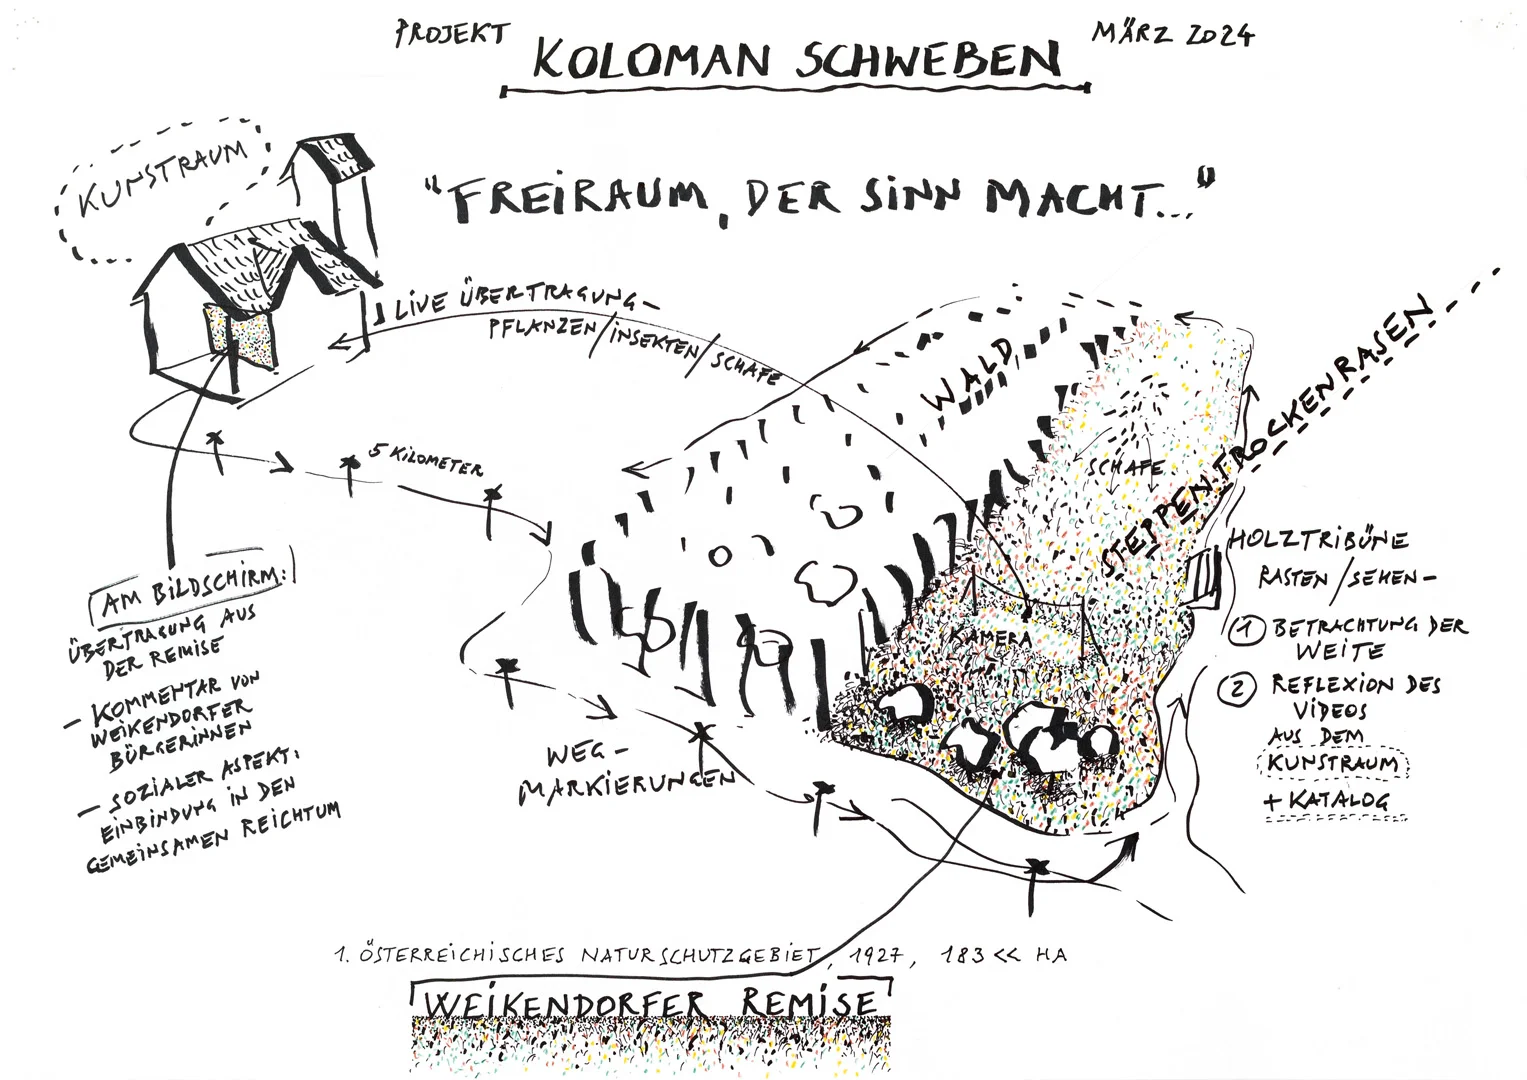 PROJEKT
KOLOMAN SCHWEBEN
MÄRZ 2024
KUNSTRAUM
"FREIRAUM, DER SINN MACHT..."
LIVE ÜBERTRAGUNG-
PFLANZEN/INSEKTEN/SCHAFE
WALD
SCHAFE
STEPPENTROCKENRASEN
5 KILOMETER
AM BILDSCHIRM:
ÜBERTRAGUNG AUS
DER REMISE
- KOMMENTAR VON
WEIKENDORFER
BÜRGERINNEN
- SOZIALER ASPEKT:
EINBINDUNG IN DEN
GEMEINSAMEN REICHTUM
WEG-
MARKIERUNGEN
KAMERA
HOLZTRIBÜNE
RASTEN/SEHEN-
1 BETRACHTUNG DER
WEITE
2 REFLEXION DES
VIDEOS
AUS DEM
KUNSTRAUM
+ KATALOG
1. ÖSTERREICHISCHES NATURSCHUTZGEBIET, 1927, 183 << HA
WEIKENDORFER REMISE